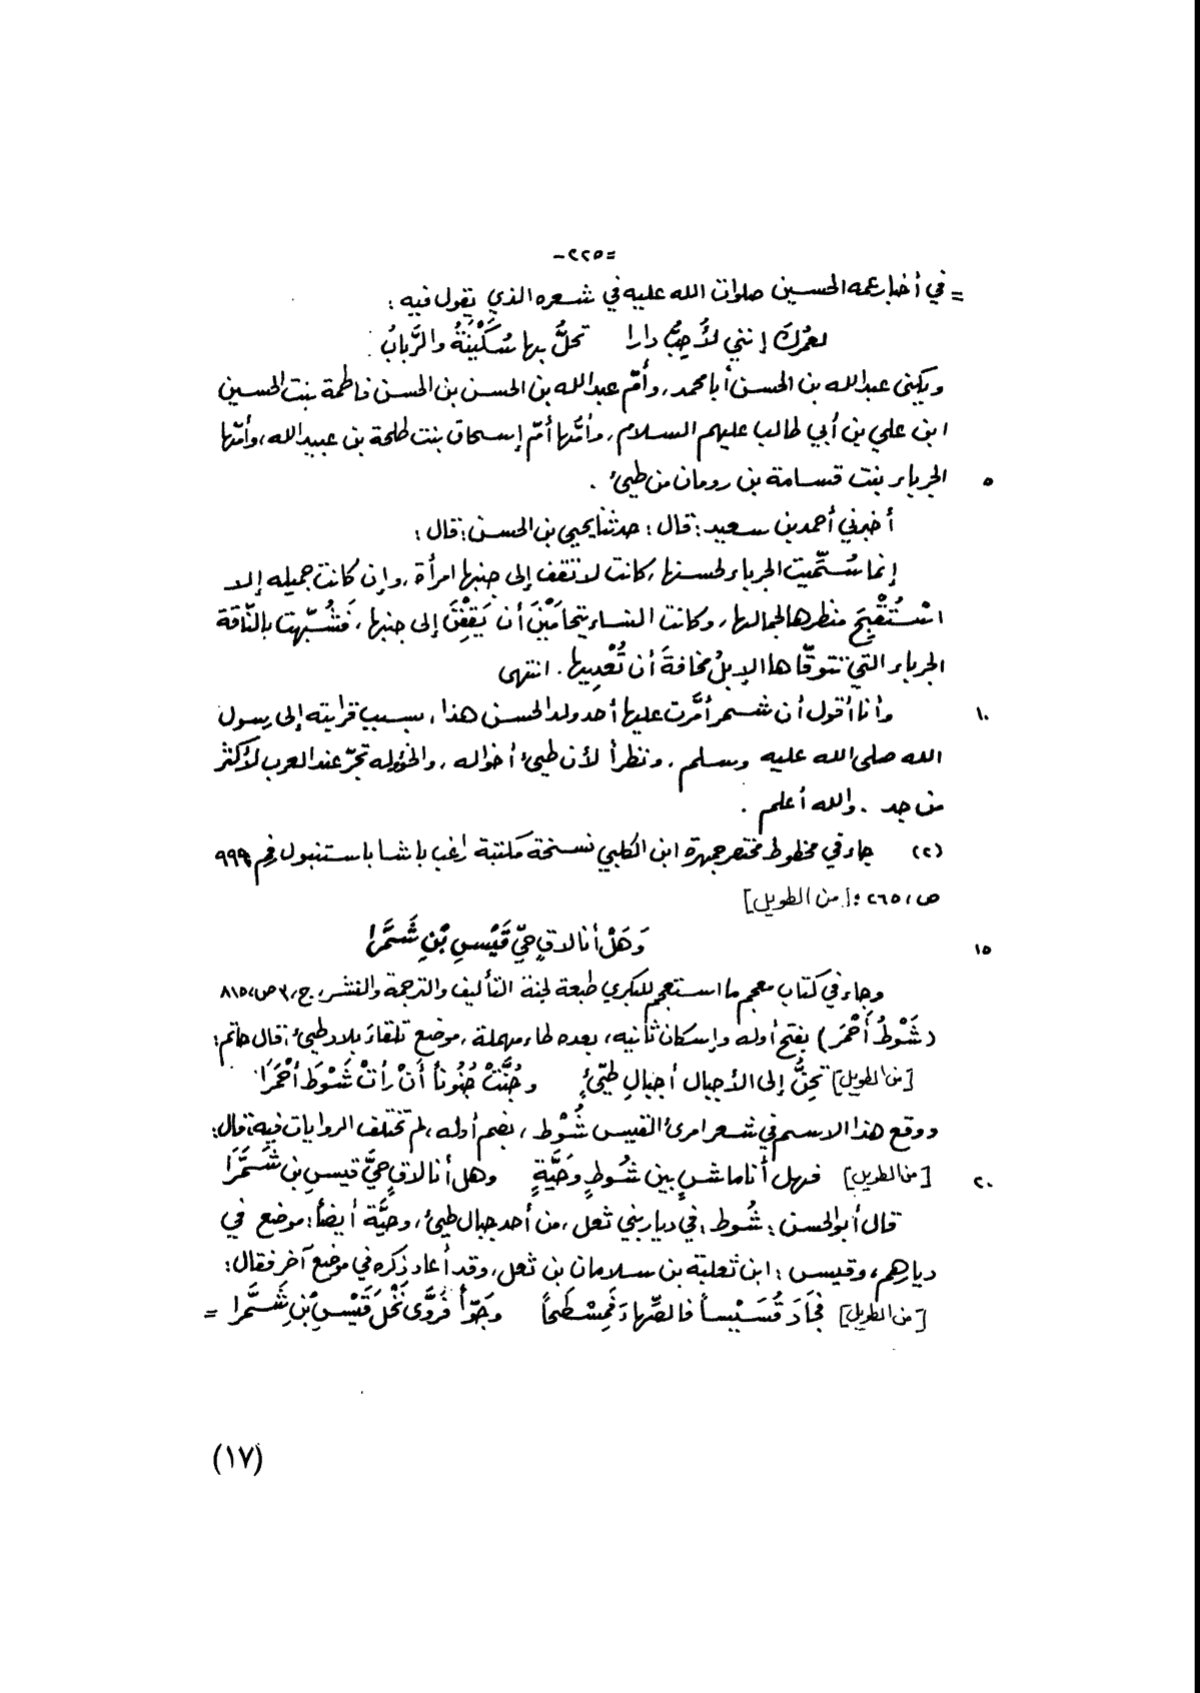 -٢٢٥=
= في أخبار عمه الحسين صلوات الله عليه في شعره الذي يقول فيه :
لعمرك إنني لأُحِبُّ دارا    تحلُّ بها سُكَيْنَةُ والرَّبابُ .
ويكنى عبدالله بن الحسن أبا محمد، وأمّ عبدالله بن الحسن بن الحسن فاطمة بنت الحسين
ابن علي بن أبي طالب عليهم السلام، وأمّها أمّ إسحاق بنت طلحة بن عبيدالله، وأمّها
٥ الجرباء بنت قسامة بن رومان من طيئ .
أخبرني أحمد بن سعيد : قال : حدثنا يحيى بن الحسن : قال :
إنما سُمِّيت الجرباء لحسنها، كانت لا تقف إلى جنبها امرأة، وإن كانت جميله إلا
اسْتُقْبِحَ منظرها لجمالها، وكانت النساء يتحامَيْنَ أن يَقِفْنَ إلى جنبها، فَشُبِّهت بالنّاقة
الجرباء التي تتوقّاها الإبلُ مخافةَ أن تُعْدِيها . انتهى
١٠ وأنا أقول أن شمر أمَّرت عليها أحد ولد الحسن هذا، بسبب قرابته إلى رسول
الله صلى الله عليه وسلم، ونظراً لأن طيئ أخواله، والخؤوله تجرّ عند العرب لأكثر
من جد . والله أعلم .
(٢) جاء في مخطوط مختصر جمهرة ابن الكلبي نسخة مكتبة راغب باشا باستنبول رقم ٩٩٩
ص، ٢٦٥ : [من الطويل]
١٥ وَهَلْ أنا لاقٍ حيَّ قَيْسِ بْنِ شَمَّرا
وجاء في كتاب معجم ما استعجم للبكري طبعة لجنة التأليف والترجمة والنشر، ج، ٣ ص، ٨١٥
(شَوْطُ أَحْمَرَ) بفتح أوله وإسكان ثانيه، بعده طاء مهملة، موضع تلقاءَ بلاد طيئ : قال حاتم :
[من الطويل] تحِنُّ إلى الأجبال أجبالِ طيّئٍ    وجُنَّتْ جُنُوناً أَنْ رأتْ شَوْطَ أَحْمَرَا
ووقع هذا الاسم في شعر امرئ القيس شُوْط، بضم أوله، لم تختلف الروايات فيه، قال :
٢٠ [من الطويل] فهل أنا ماشٍ بين شُوطٍ وحَيَّةٍ    وهل أنا لاقٍ حيَّ قيسِ بن شَمَّرَا
قال أبو الحسن : شُوط : في ديار بني ثعل، من أحد جبال طيئ، وحيَّة أيضاً : موضع في
ديارهم، وقيس : ابن ثعلبة بن سلامان بن ثعل، وقد أعاد ذكره في موضع آخر فقال :
[من الطويل] فجَادَ قُسَيْساً فالصِّهاءَ فَمِسْطَحاً    وجَوّاً فروَّى نَخْلَ قَيْسِ بْنِ شَمَّرا =
(١٧)